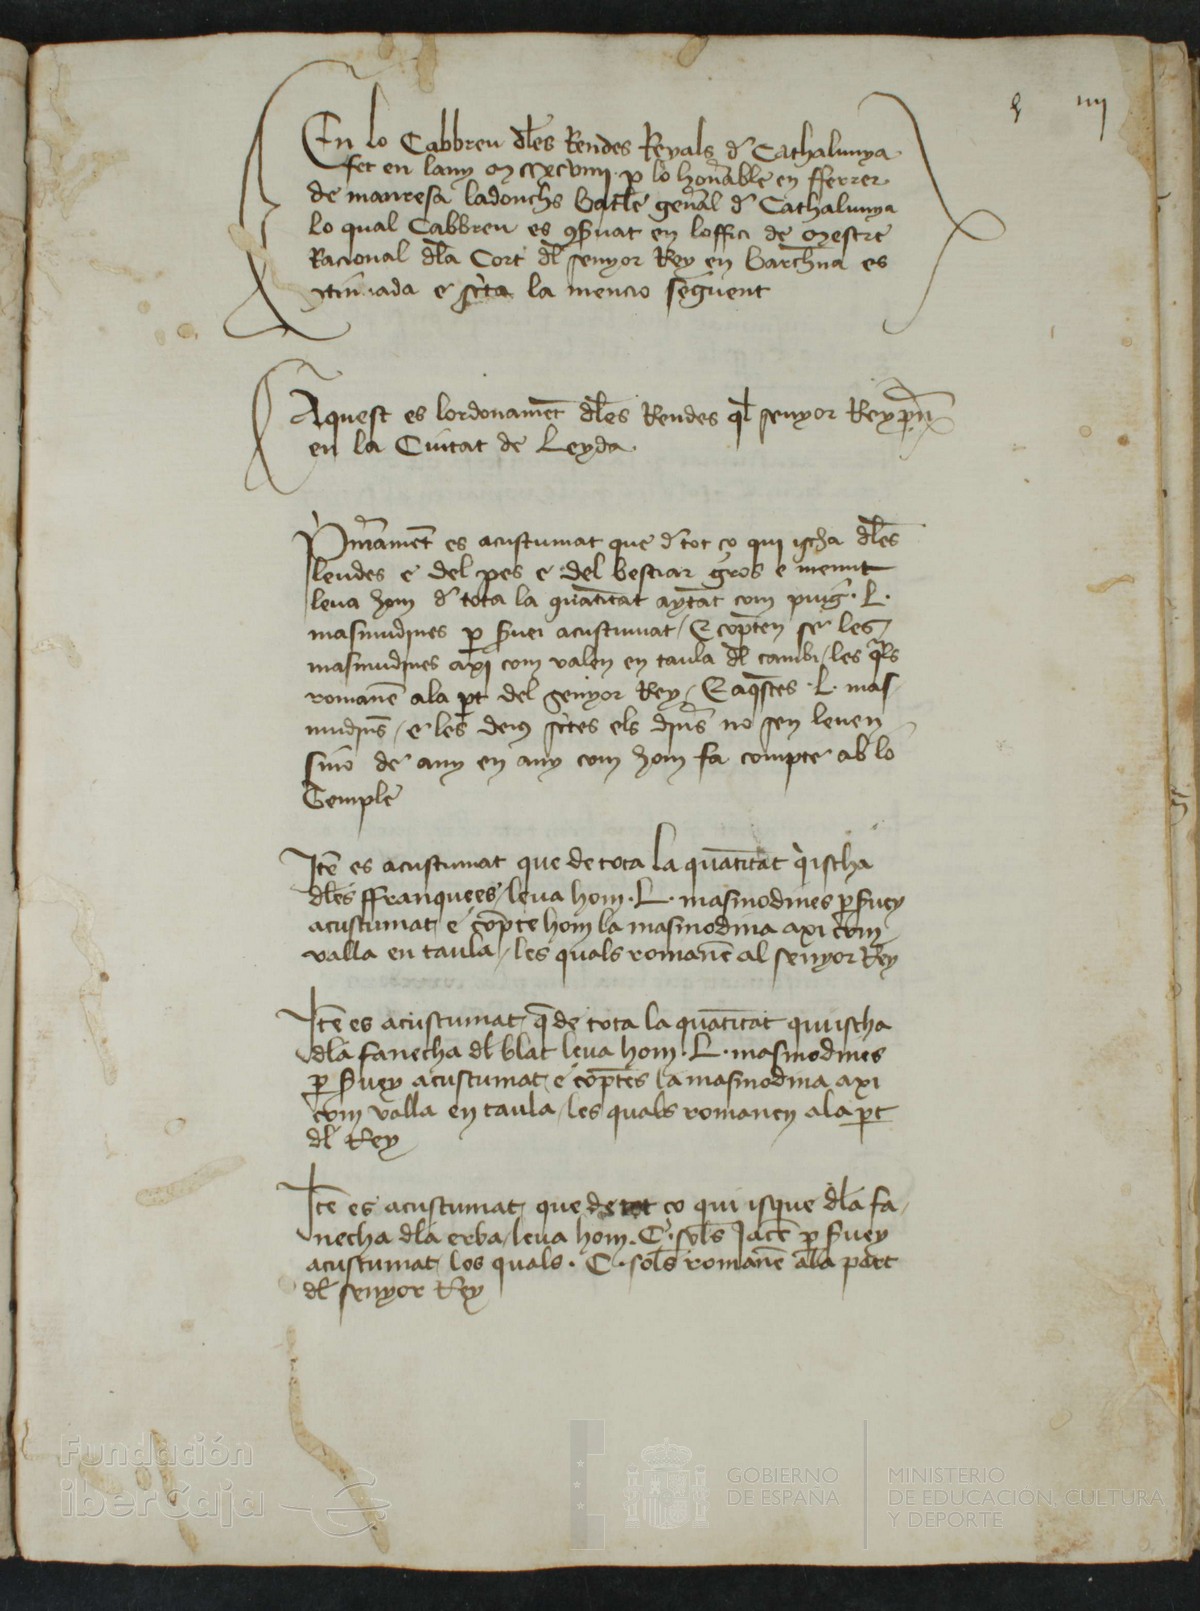 iiij
En lo Cabbreu dles Rendes Reyals d Cathalunya
fet en lany M CCXCVIIII p lo honrable en fferrer
de manresa ladonchs batle genral d Cathalunya
lo qual Cabbreu es 9seruat en loffici de Mestre
Racional dla Cort dl senyor Rey en barchna es
e la mencio seguent
Aquest es lordonament dles Rendes ql senyor Rey pren
en la Ciutat de Leyda
Primament es acustumat que d tot ço qui ischa dles
leudes e del pes e del bestiar gros e menut
leua hom d tota la quantitat aytat com puig · L ·
masmudines p seruei acustumat / E copten se les
masmudines axi com valen en taula dl cambi / les qls
romane ala pt del senyor Rey / E aqstes · L · mas
mudins / e les demes els dins no sen leuen
sino de any en any com hom fa compte ab lo
Temple
Ite es acustumat que de tota la quatitat q ischa
dles ffranquees / leua hom · L · masmodines p seruey
acustumat e copte hom la masmodina axi com
valla en taula / les quals romane al senyor Rey
Ite es acustumat q de tota la quatitat qui ischa
dla fanecha dl blat leua hom · L · masmodines
p seruey acustumat e coptes la masmodina axi
com valla en taula / les quals romanen ala pt
dl Rey
Ite es acustumat que de tot ço qui isque dla fa
necha dla erba / leua hom · C · sols Jacc p seruey
acustumat los quals · C · sols romane ala part
dl senyor Rey
Fundación
iberCaja
GOBIERNO
DE ESPAÑA
MINISTERIO
DE EDUCACIÓN, CULTURA
Y DEPORTE